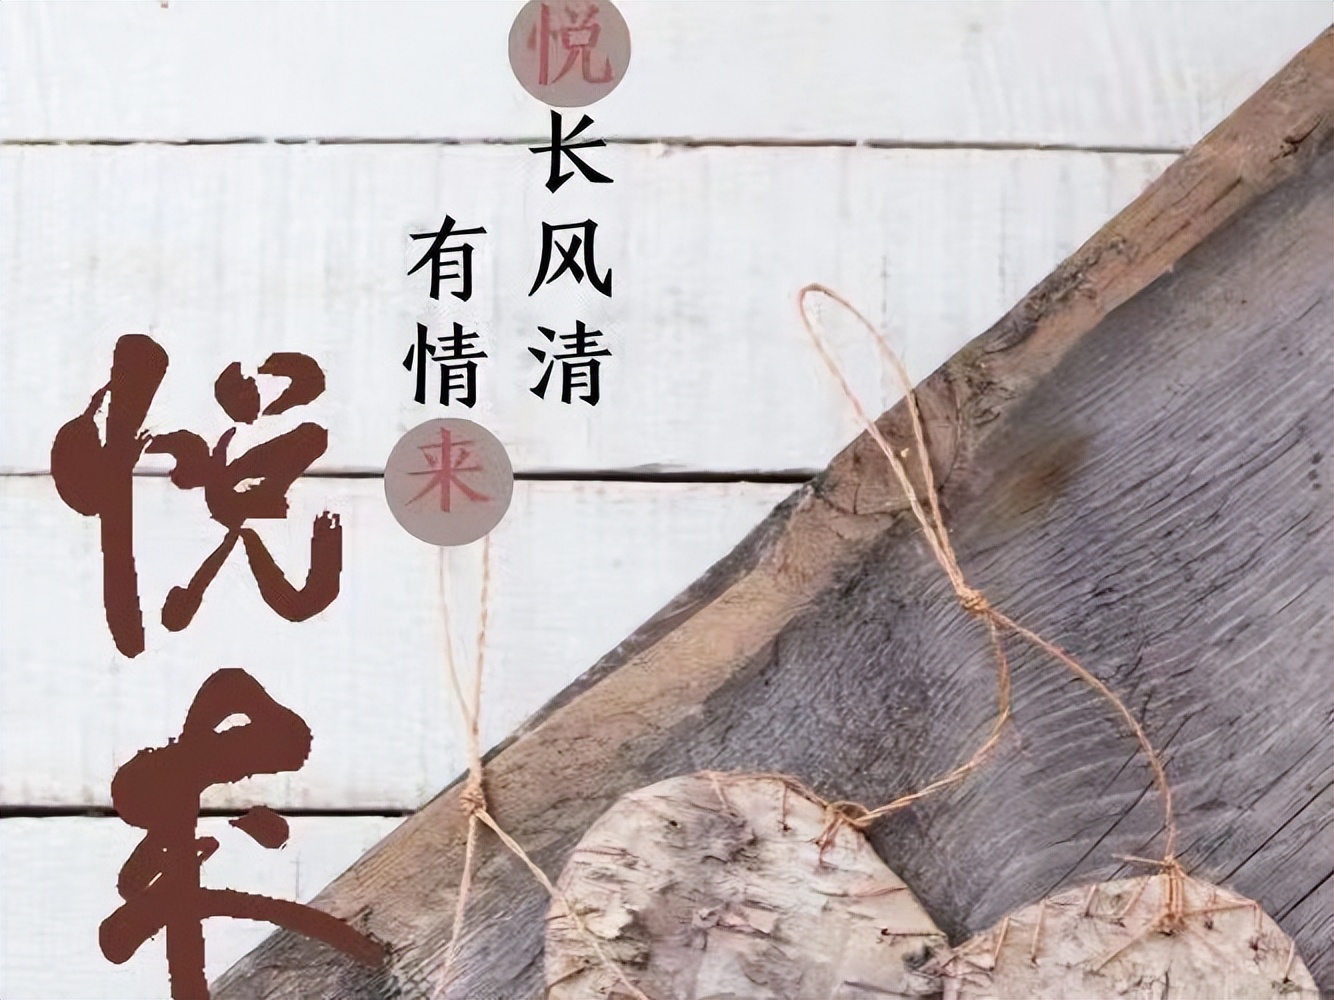 悦长风清
有情来
悦来